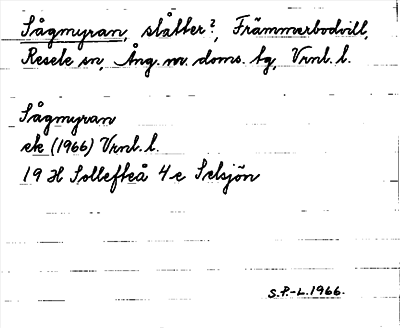 Sågmyran, slåtter?, Främmerbodvill,
Resele sn, Ång. nv. doms. tg, Vrnl. l.
Sågmyran
ek (1966) Vrnl. l.
19 H Sollefteå 4 e Selsjön
S.P.-L. 1966.